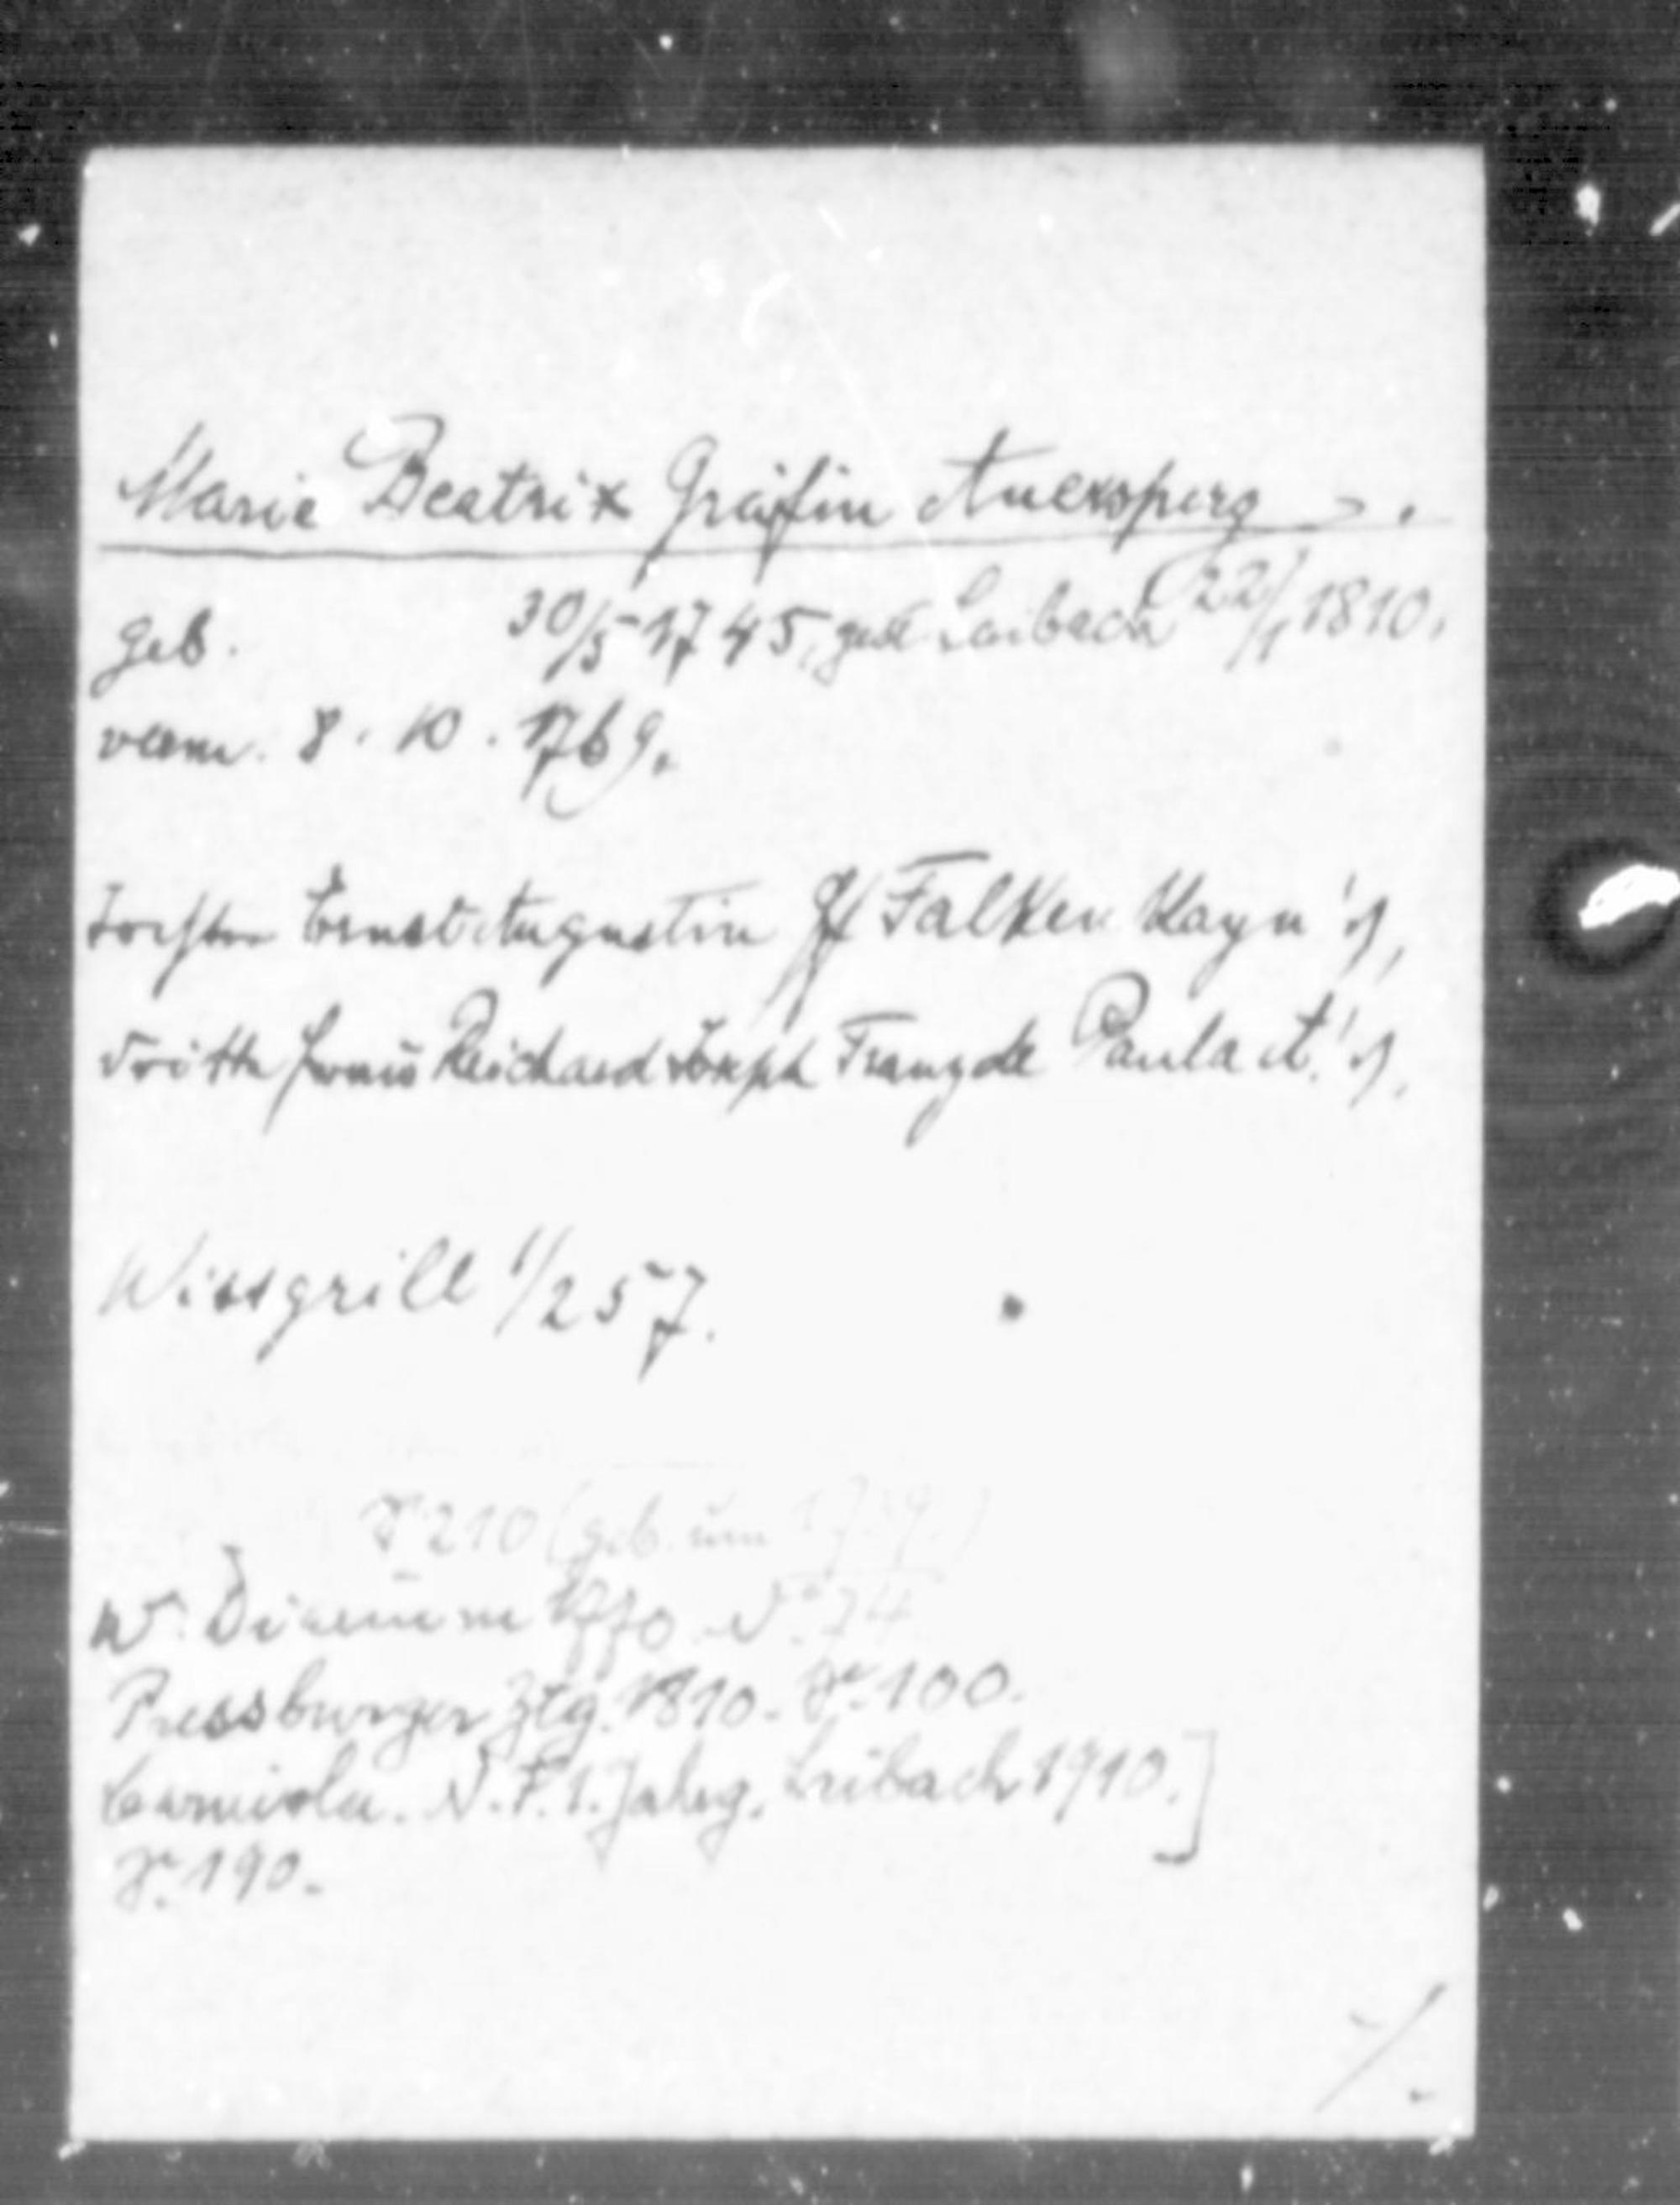 Marie Beatrix Gräfin Auersperg
geb. 30/5 1745, gest. Laibach 22/1 1810.
verm. 8. 10. 1769.
Tochter Ernst Augustin Gf Falken Hayn's,
dritte Frau Reichard Joseph Franz de Paula A.'s.
Wissgrill 1/257.
S. 210 (geb. um 1739.)
W. Diarium 1770. No. 74
Pressburger Ztg. 1810. S. 100.
Carniola. N. F. 1. Jahrg. Laibach 1910.]
S. 190.
./.